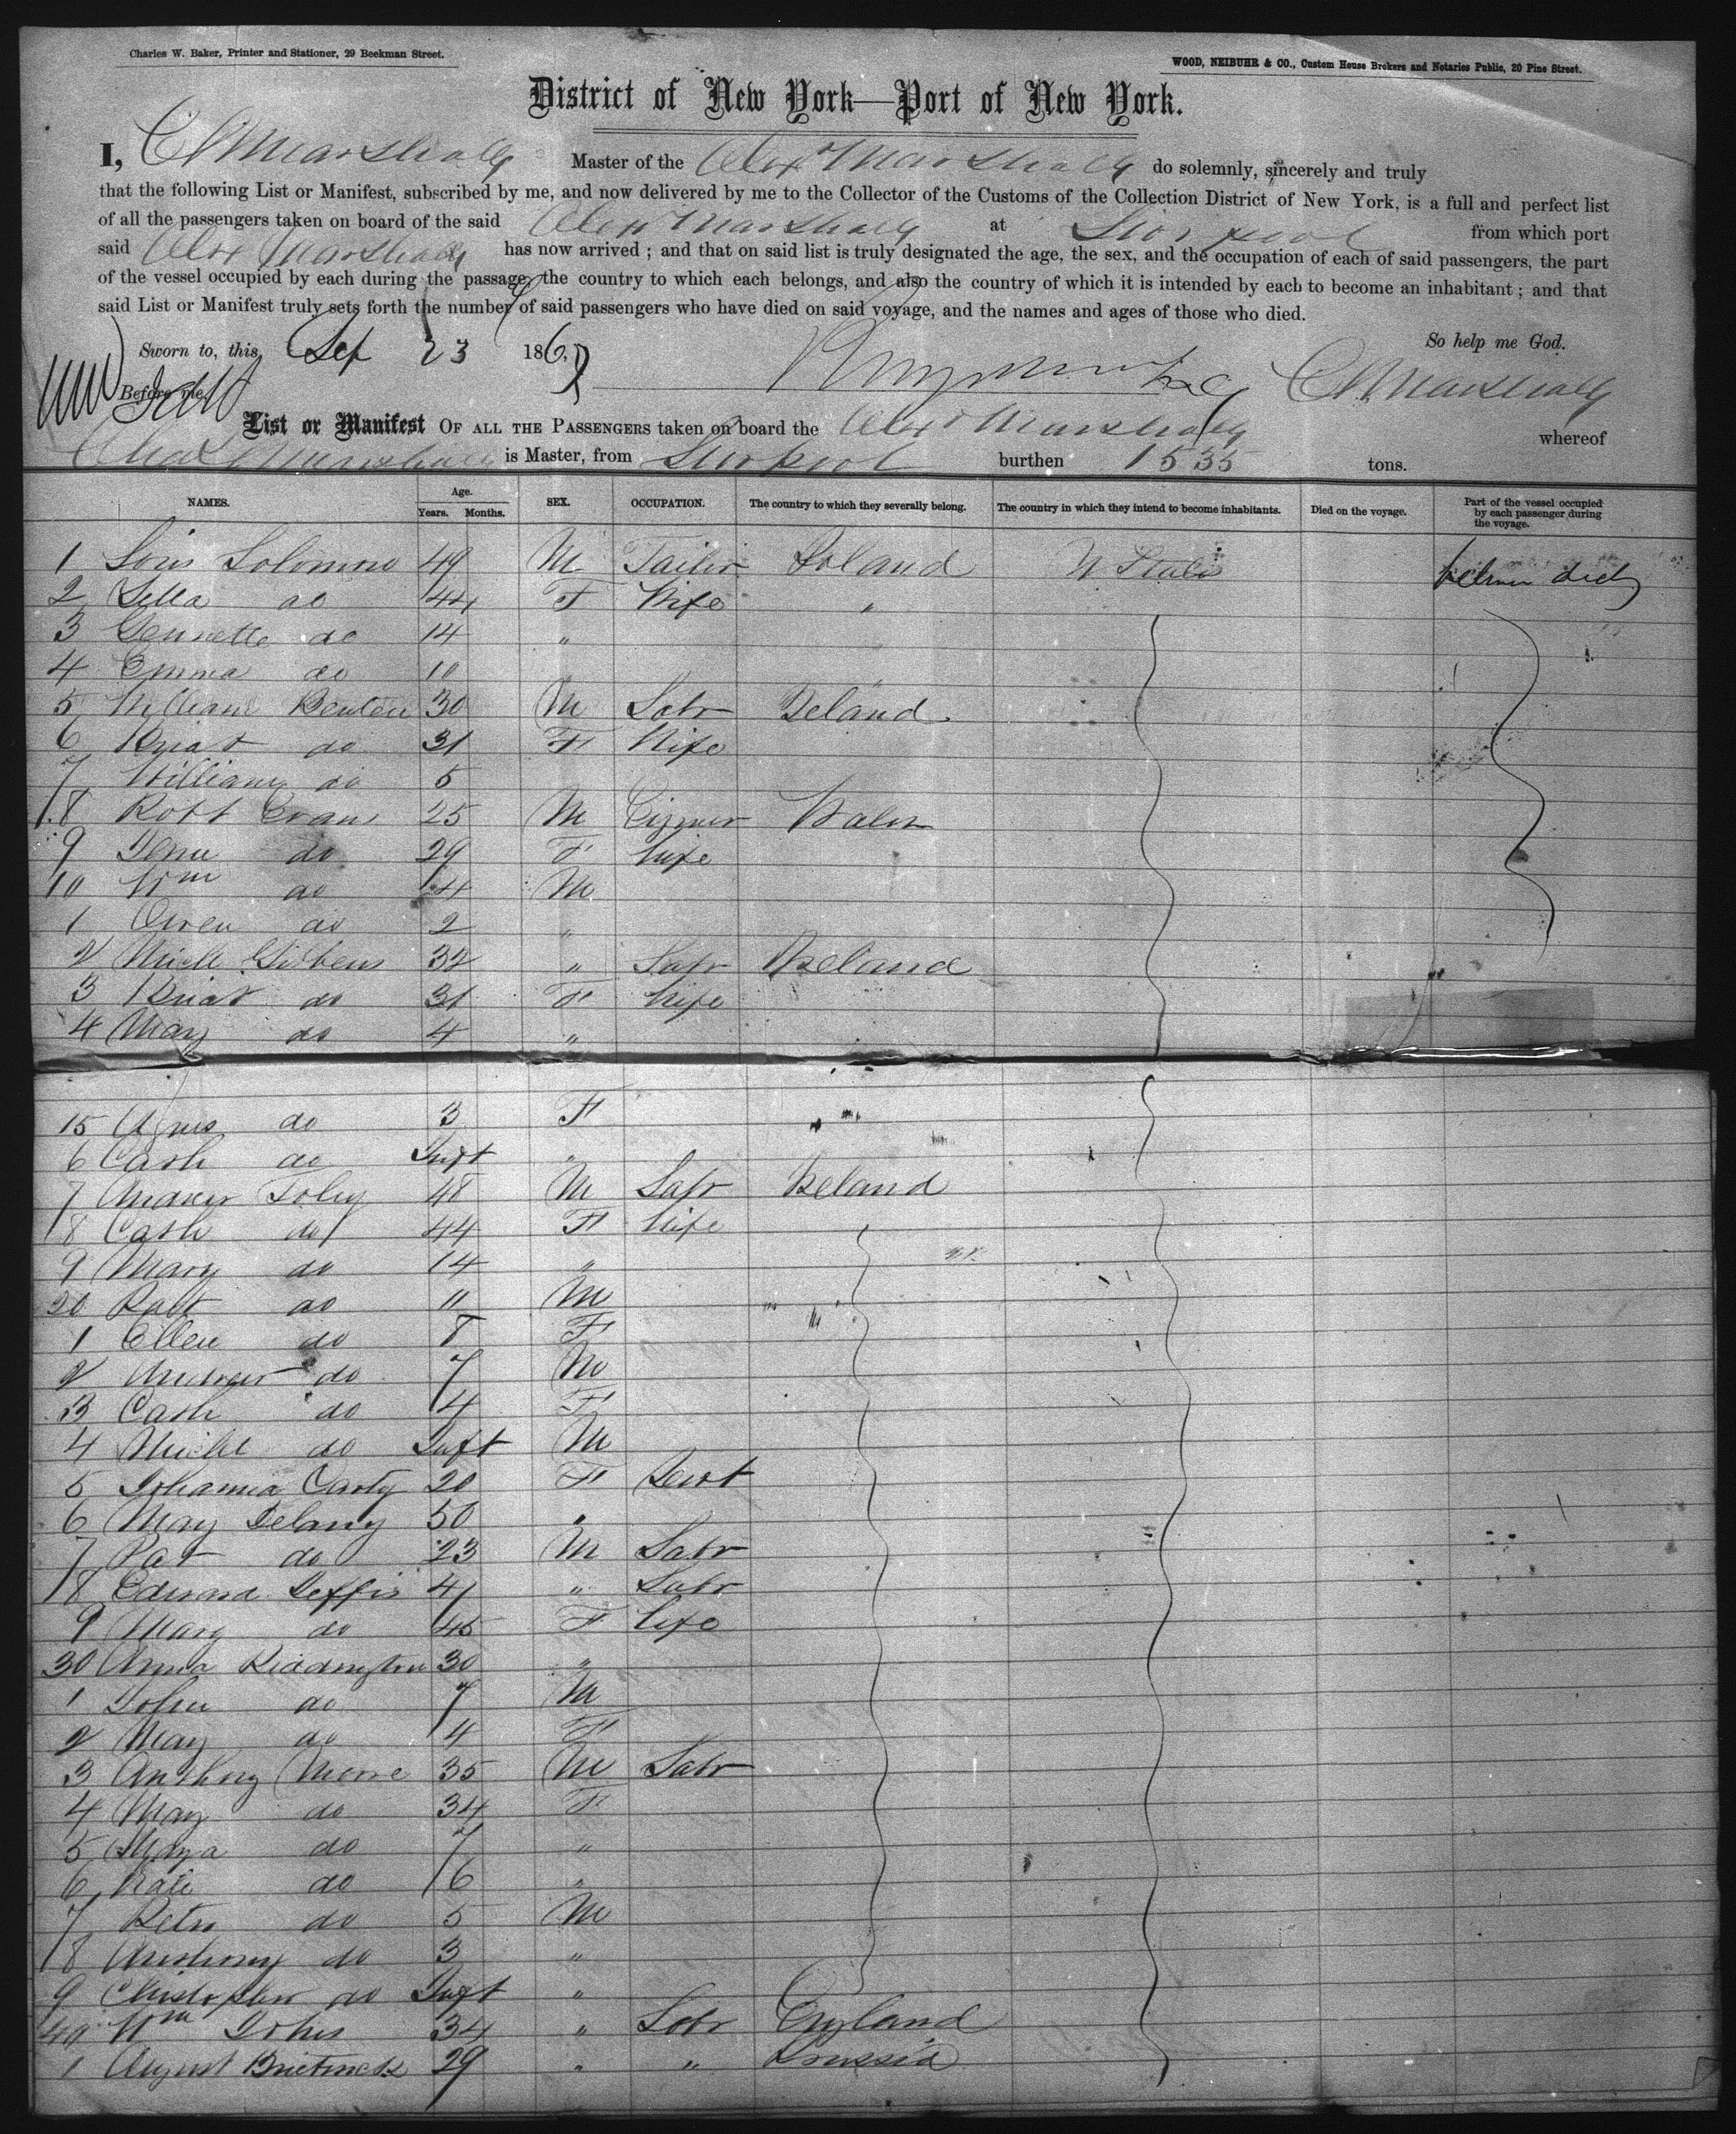 Charles W. Baker, Printer and Stationer, 29 Beekman Street.
WOOD, NEIBUHR & CO., Custom House Brokers and Notaries Public, 20 Pine Street.
District of New York—Port of New York.
I, C A Marshall Master of the Alex Marshall do solemnly, sincerely and truly
that the following List or Manifest, subscribed by me, and now delivered by me to the Collector of the Customs of the Collection District of New York, is a full and perfect list
of all the passengers taken on board of the said Alex Marshall at Liverpool from which port
said Alex Marshall has now arrived; and that on said list is truly designated the age, the sex, and the occupation of each of said passengers, the part
of the vessel occupied by each during the passage, the country to which each belongs, and also the country of which it is intended by each to become an inhabitant; and that
said List or Manifest truly sets forth the number of said passengers who have died on said voyage, and the names and ages of those who died.
So help me God.
Sworn to, this Sep 23 186
C A Marshall
Before me,
List or Manifest OF ALL THE PASSENGERS taken on board the Alex Marshall whereof
Marshall is Master, from Liverpool burthen 1535 tons.
NAMES. Age. Years. Months. SEX. OCCUPATION. The country to which they severally belong. The country in which they intend to become inhabitants. Died on the voyage. Part of the vessel occupied by each passenger during the voyage.
1 Louis Solomon 49 M Tailor Poland U States
2 do 44 F Wife "
3 Jennette do 14 "
4 Emma do 10
5 William 30 M Labr Ireland
6 do 31 F Wife
7 William do 5
8 Robt Evans 25 M Wales
9 do 29 F Wife
10 Wm do 4 M
1 Owen do 2 "
2 Gibbens 32 " Labr Ireland
3 do 31 F Wife
4 Mary do 4 "
15 Agnes do 3 F
6 Cath do Inft "
7 Andrew Foley 48 M Labr Ireland
8 Cath do 44 F Wife
9 Mary do 14 "
20 do 11 M
1 Ellen do 8 F
2 Andrew do 7 M
3 Cath do 4 F
4 Michl do Inft M
5 Johanna Carty 20 F Servt
6 Mary Delany 50 "
7 Pat do 23 M Labr
8 Edward 41 " Labr
9 Mary do 45 F Wife
30 Anna Riddington 30 "
1 John do 7 M
2 Mary do 4 F
3 Anthony 35 M Labr
4 Mary do 34 F
5 do 7 "
6 Kate do 6 "
7 Peter do 5 M
8 Anthony do 3 "
9 Christopher do Inft "
40 Wm 34 " Labr England
1 August 29 " " Prussia